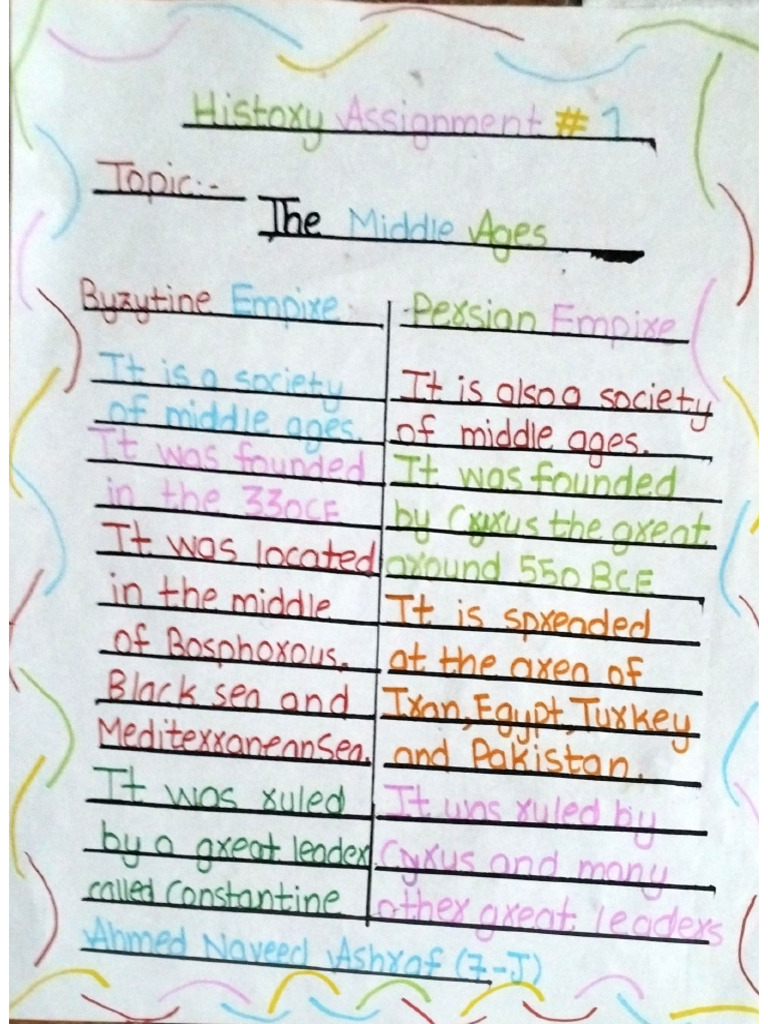 History Assignment # 1
Topic:-
The Middle Ages
Byzytine Empire
It is a society
of middle ages.
It was founded
in the 330CE
It was located
in the middle
of Bosphorous.
Black sea and
Mediterranean Sea.
It was ruled
by a great leader
called Constantine
Persian Empire
It is also a society
of middle ages.
It was founded
by Cyrus the great
around 550 BCE
It is spreaded
at the area of
Iran, Egypt, Turkey
and Pakistan.
It was ruled by
Cyrus and many
other great leaders
Ahmed Naveed Ashraf (7-J)